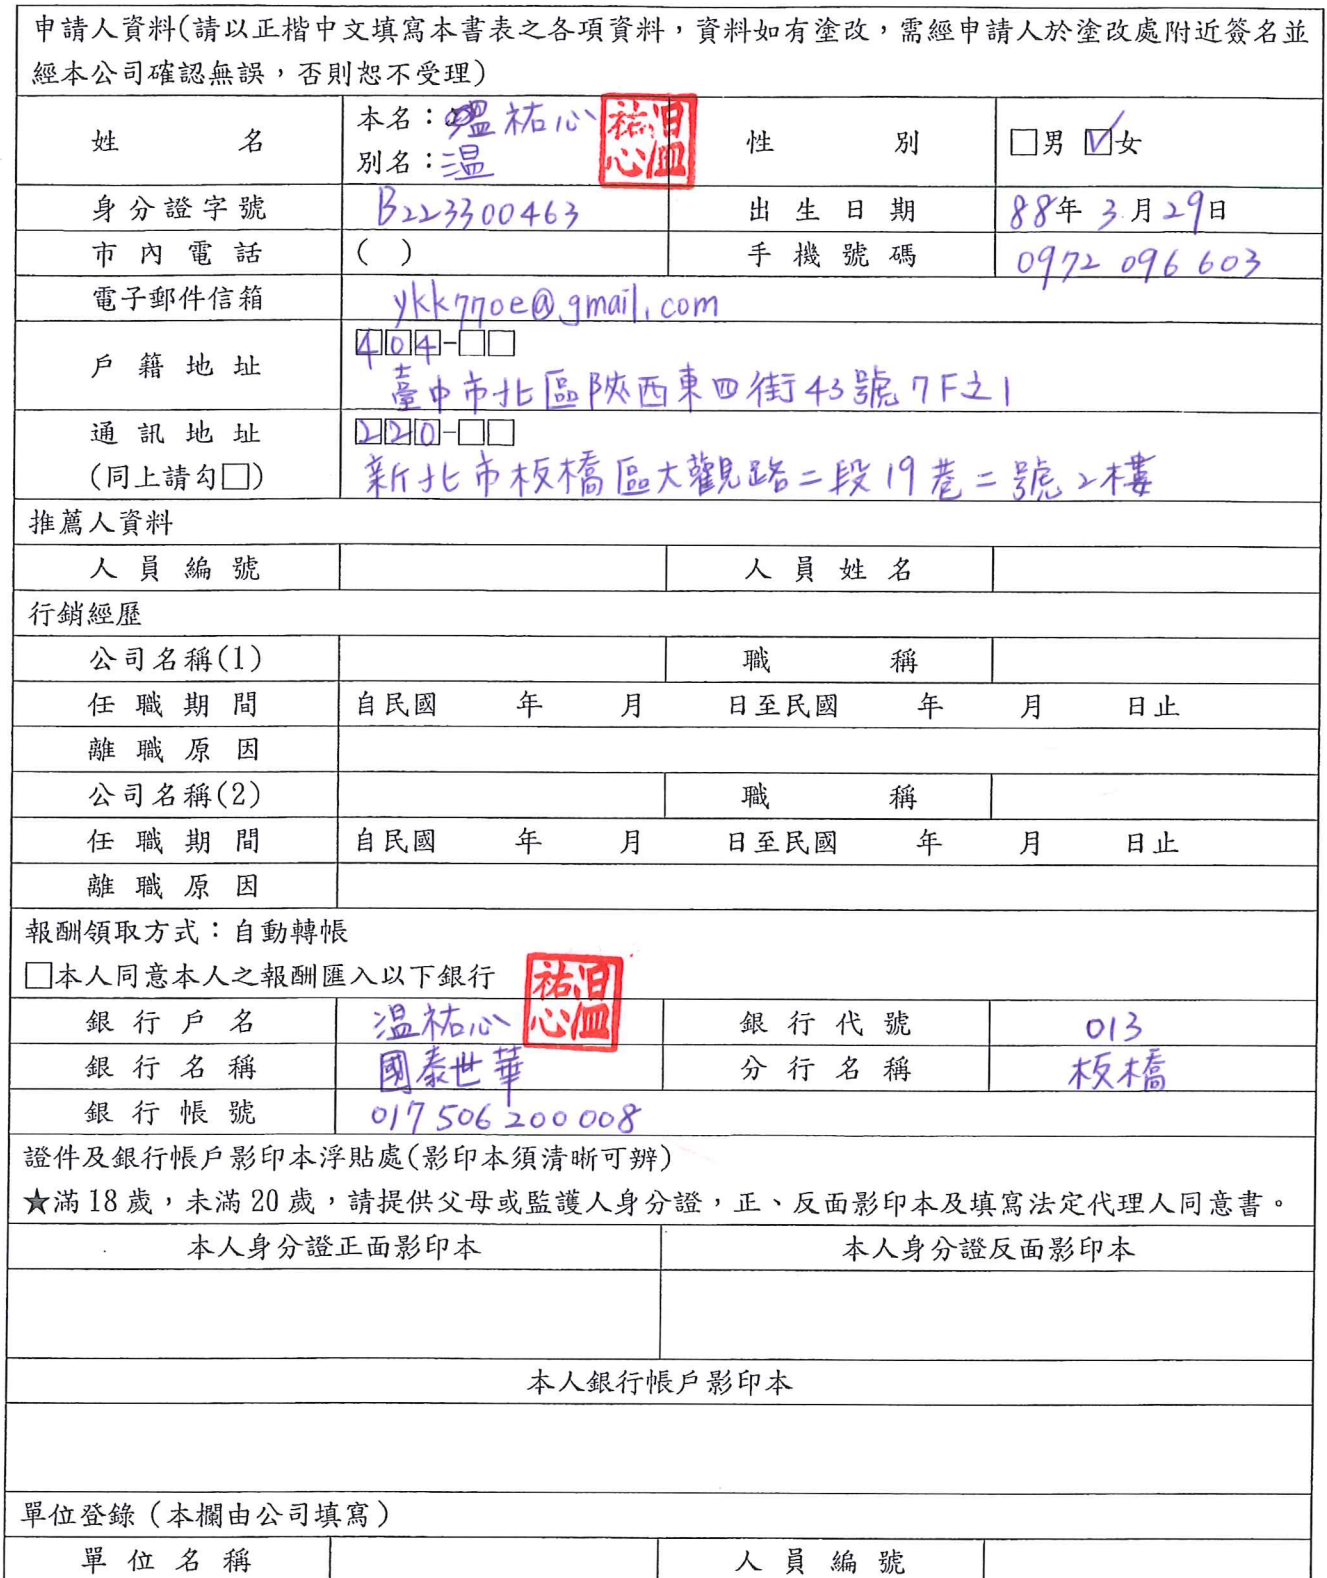 申請人資料(請以正楷中文填寫本書表之各項資料，資料如有塗改，需經申請人於塗改處附近簽名並
經本公司確認無誤，否則恕不受理)
姓名 本名：溫祐心 性別 □男 ☑女
別名：溫
溫祐心
身分證字號 B223300463 出生日期 88年3月29日
市內電話 ( ) 手機號碼 0972 096 603
電子郵件信箱 ykk770e@gmail.com
戶籍地址 404-□□
臺中市北區陝西東四街43號7F之1
通訊地址 220-□□
(同上請勾□) 新北市板橋區大觀路二段19巷二號2樓
推薦人資料
人員編號 人員姓名
行銷經歷
公司名稱(1) 職稱
任職期間 自民國 年 月 日至民國 年 月 日止
離職原因
公司名稱(2) 職稱
任職期間 自民國 年 月 日至民國 年 月 日止
離職原因
報酬領取方式：自動轉帳
□本人同意本人之報酬匯入以下銀行
溫祐心
銀行戶名 溫祐心 銀行代號 013
銀行名稱 國泰世華 分行名稱 板橋
銀行帳號 017506200008
證件及銀行帳戶影印本浮貼處(影印本須清晰可辨)
★滿18歲，未滿20歲，請提供父母或監護人身分證，正、反面影印本及填寫法定代理人同意書。
本人身分證正面影印本 本人身分證反面影印本
本人銀行帳戶影印本
單位登錄（本欄由公司填寫）
單位名稱 人員編號